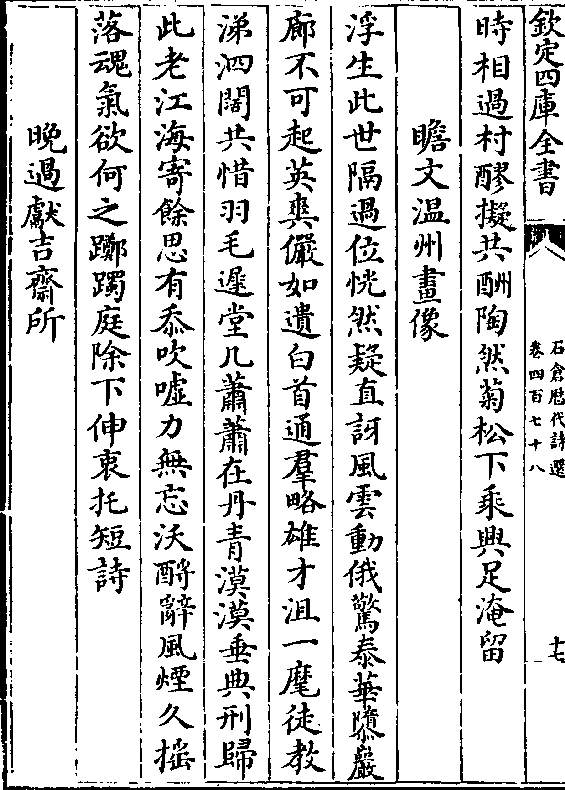 欽定四庫全書
石倉歴代詩選
卷四百七十八
十七
時相過村醪擬共酬陶然菊松下乘興足淹留
瞻文温州畫像
浮生此世隔過位恍然疑直訝風雲動俄驚泰華隳巖
廊不可起英爽儼如遺白首通羣略雄才沮一麾徒教
涕泗闊共惜羽毛遲堂几蕭蕭在丹青漠漠垂典刑歸
此老江海寄餘思有忝吹噓力無忘沃酹辭風煙久搖
落魂氣欲何之躑躅庭除下伸衷托短詩
晚過獻吉齋所